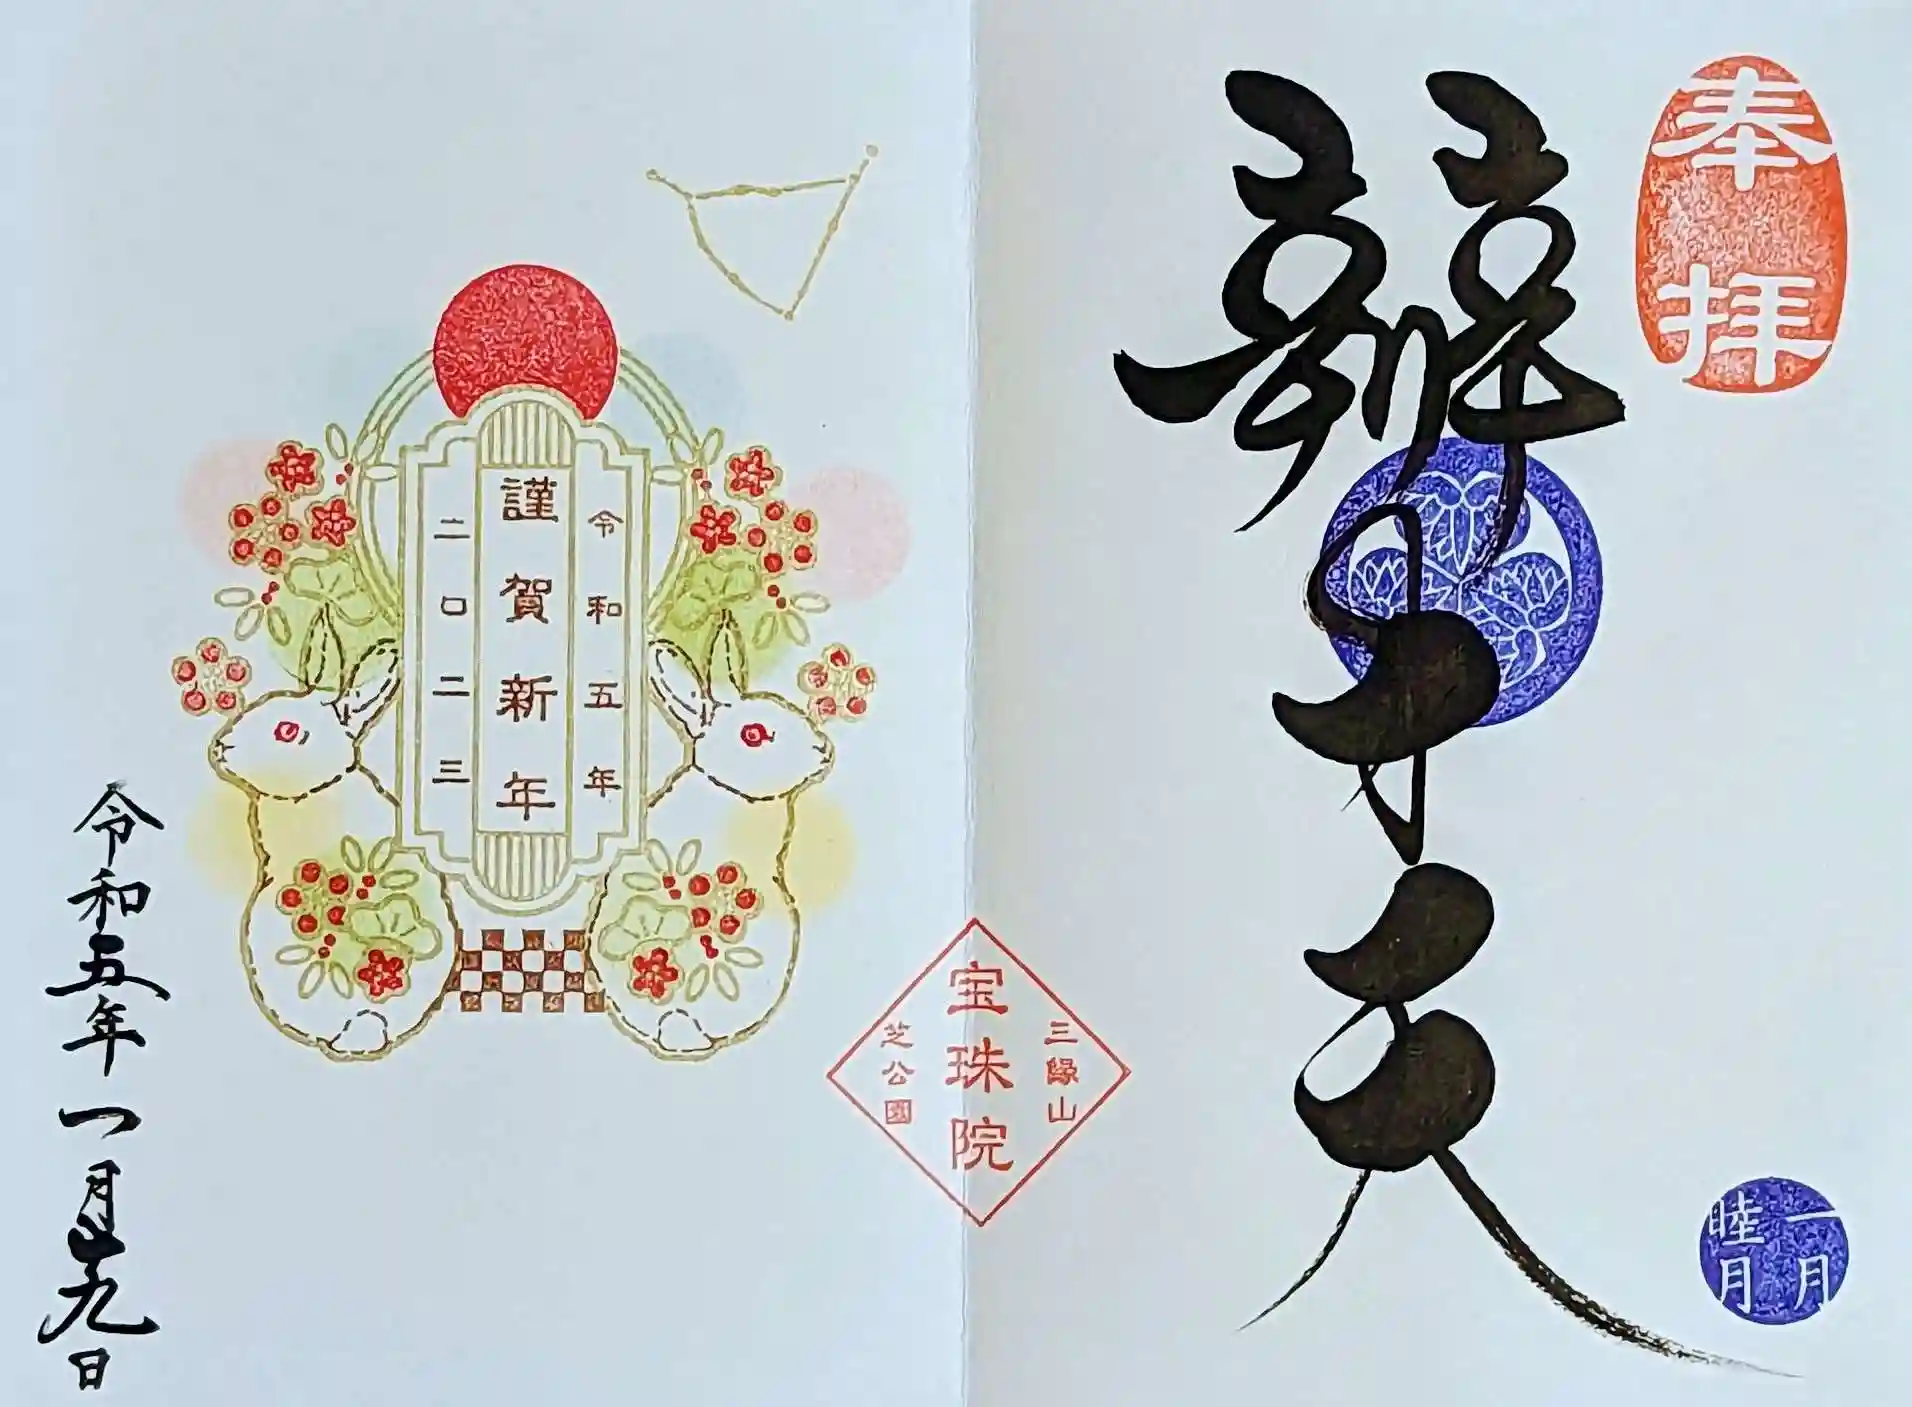 奉拝
辨才天
一月
睦月
三縁山
宝珠院
芝公園
令和五年
謹賀新年
二〇二三
令和五年一月廿九日